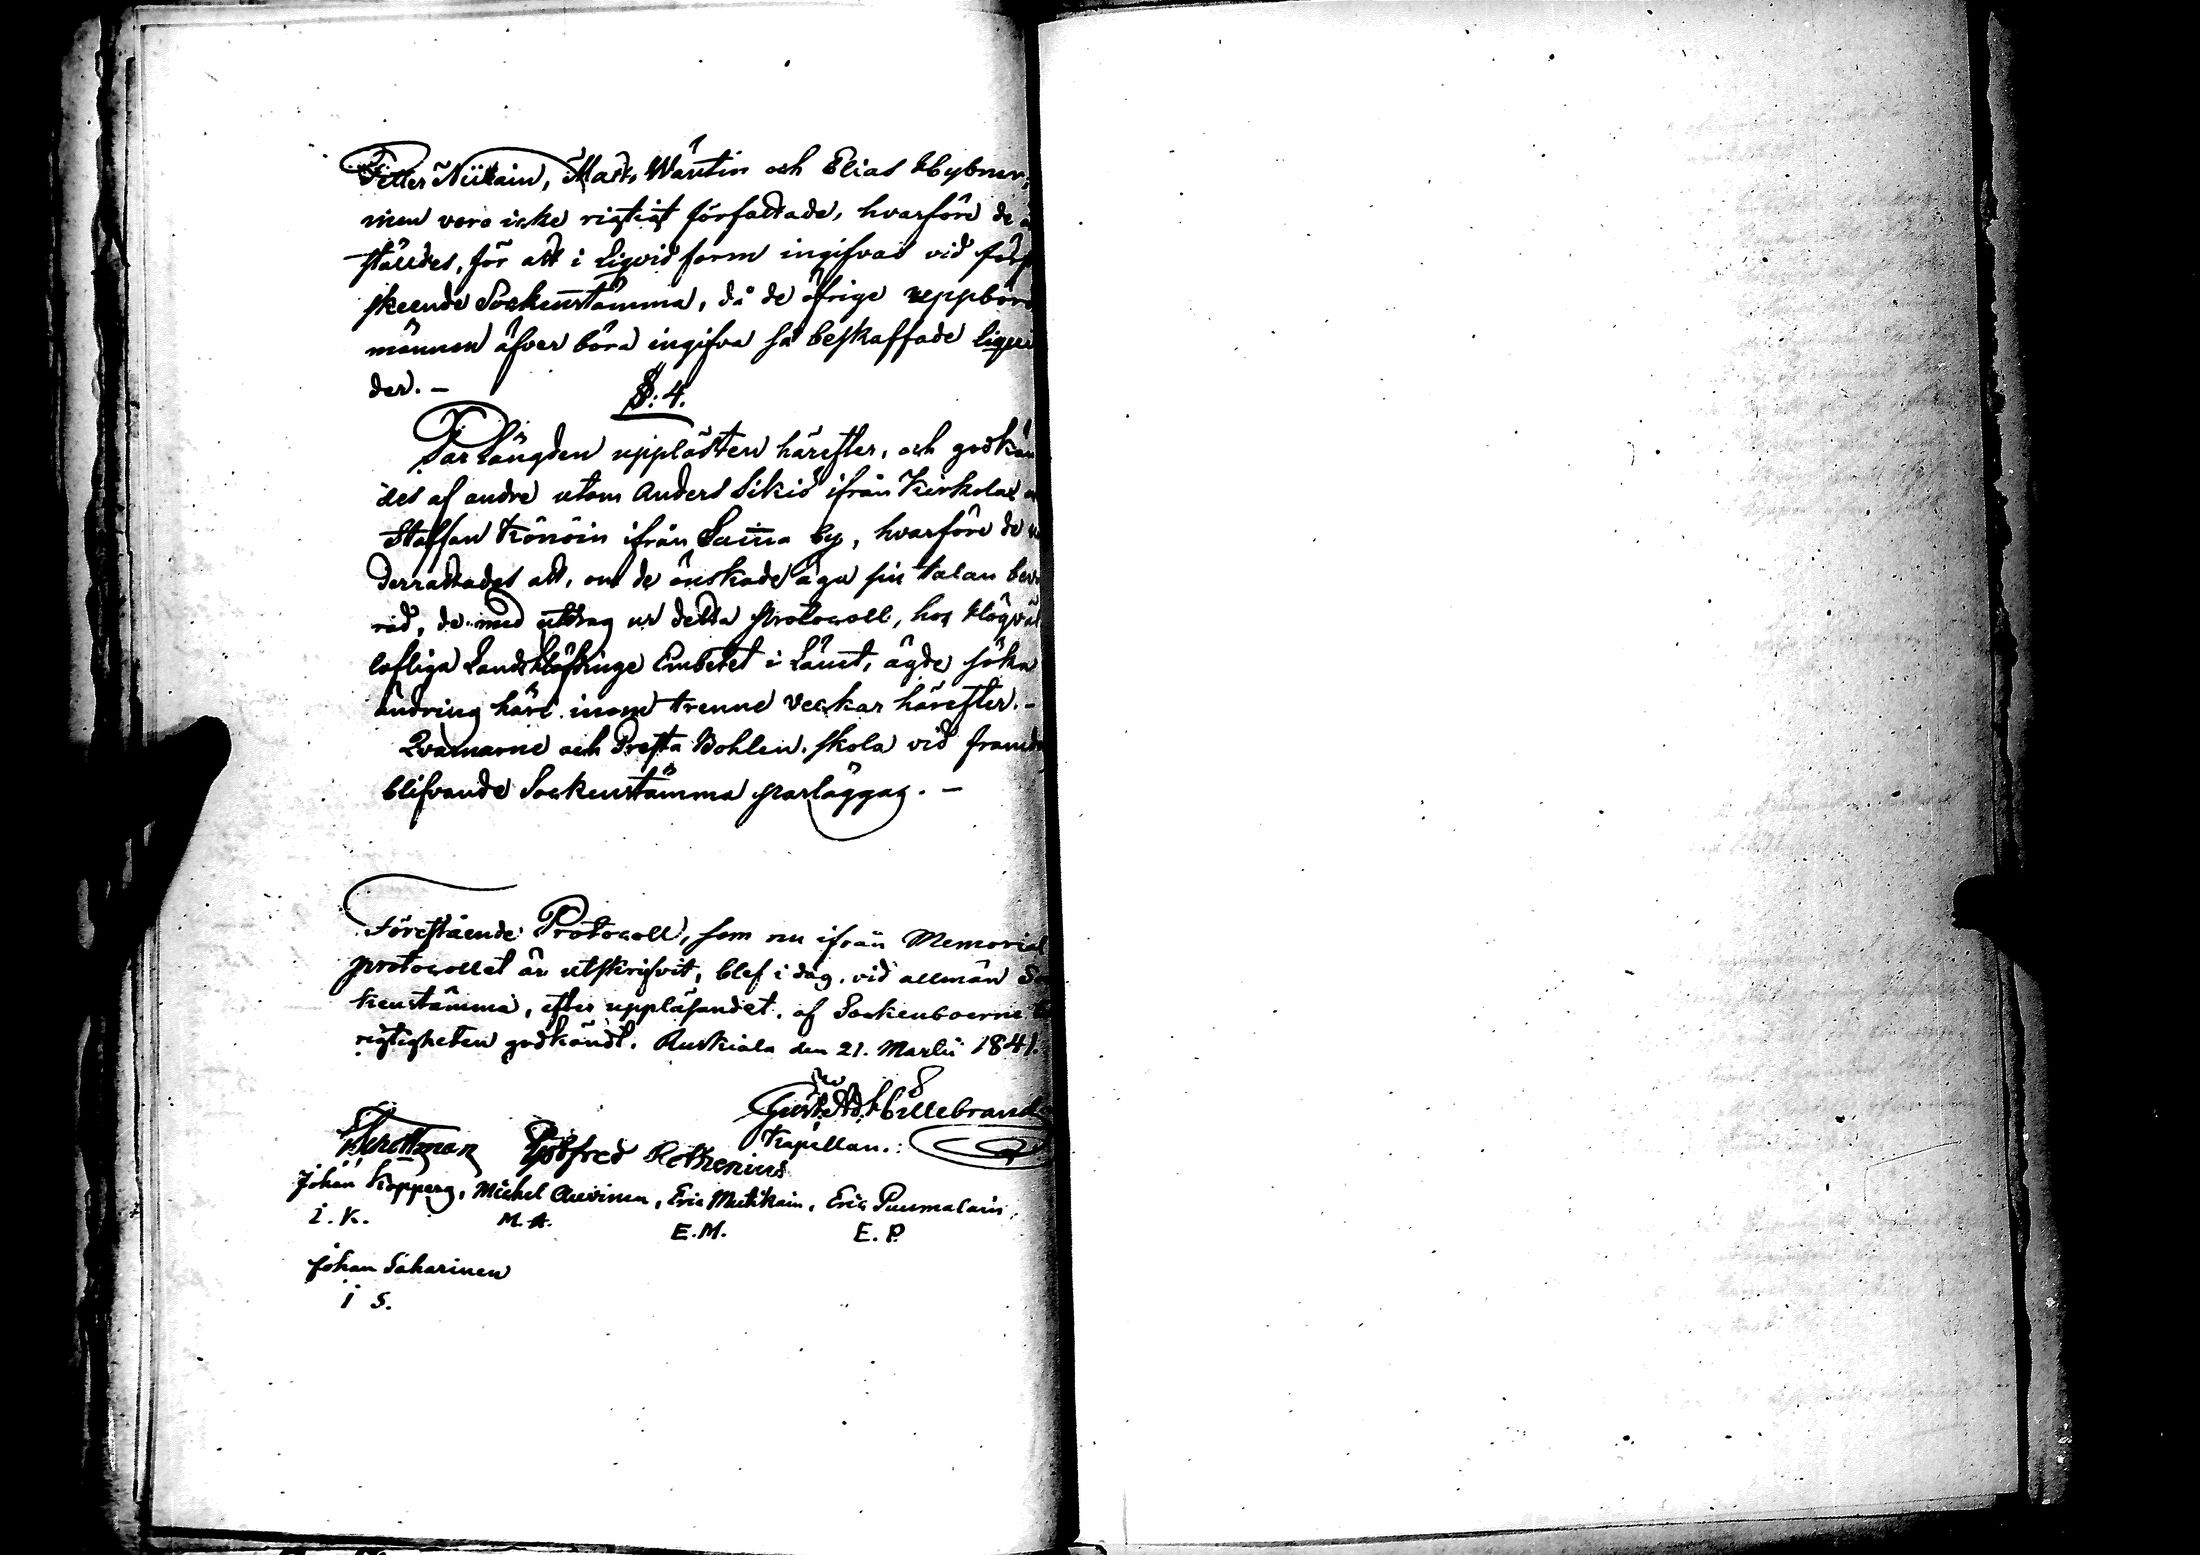 Petter Niikain, Matts Wäntin och Elias Hybner,
men vero icke rigtigt författade, hvarföre de
ställdes, för att i Liqvid form ingifvas vid först
skeende Sockenstämma, då de öfrige uppbörds
männen äfven böra ingifva så beskaffade liqui
der. –
§: 4.
Parlängden upplästen härefter, och godkän
des af andre utom Anders Sikiö ifrån Kirkolax
Staffan Könöin ifrån Sama by, hvarföre de
derrattades att, om de önskade äga sin talan bev
rad, de med utdrag ur detta protocoll, hos Högväl
lofliga Landshöfdinge Embetet i Länet, ägde söka
ändring häri inom trenne veckar härefter. –
Qvarnarne och Presta Bohlen skola vid framde
blifvande Sockenstämma parläggas. –
Förestående Protocoll, som nu ifrån Memorial
protocollet är utskrifvit, blef i dag, vid allmän So
kenstämma, efter uppläsandet, af Sockenboerne till
rigtigheten godkändt. Ruskiala den 21. Martii 1841.
Gust. Ad. Hillebrand
Kapellan.
Gotfred Rothenius
Johan Kopperg, Michel Auvinen, Eric Mutikain, Eric Puumalain,
I. K. M. A. E. M. E. P.
Johan Saharinen
I S.